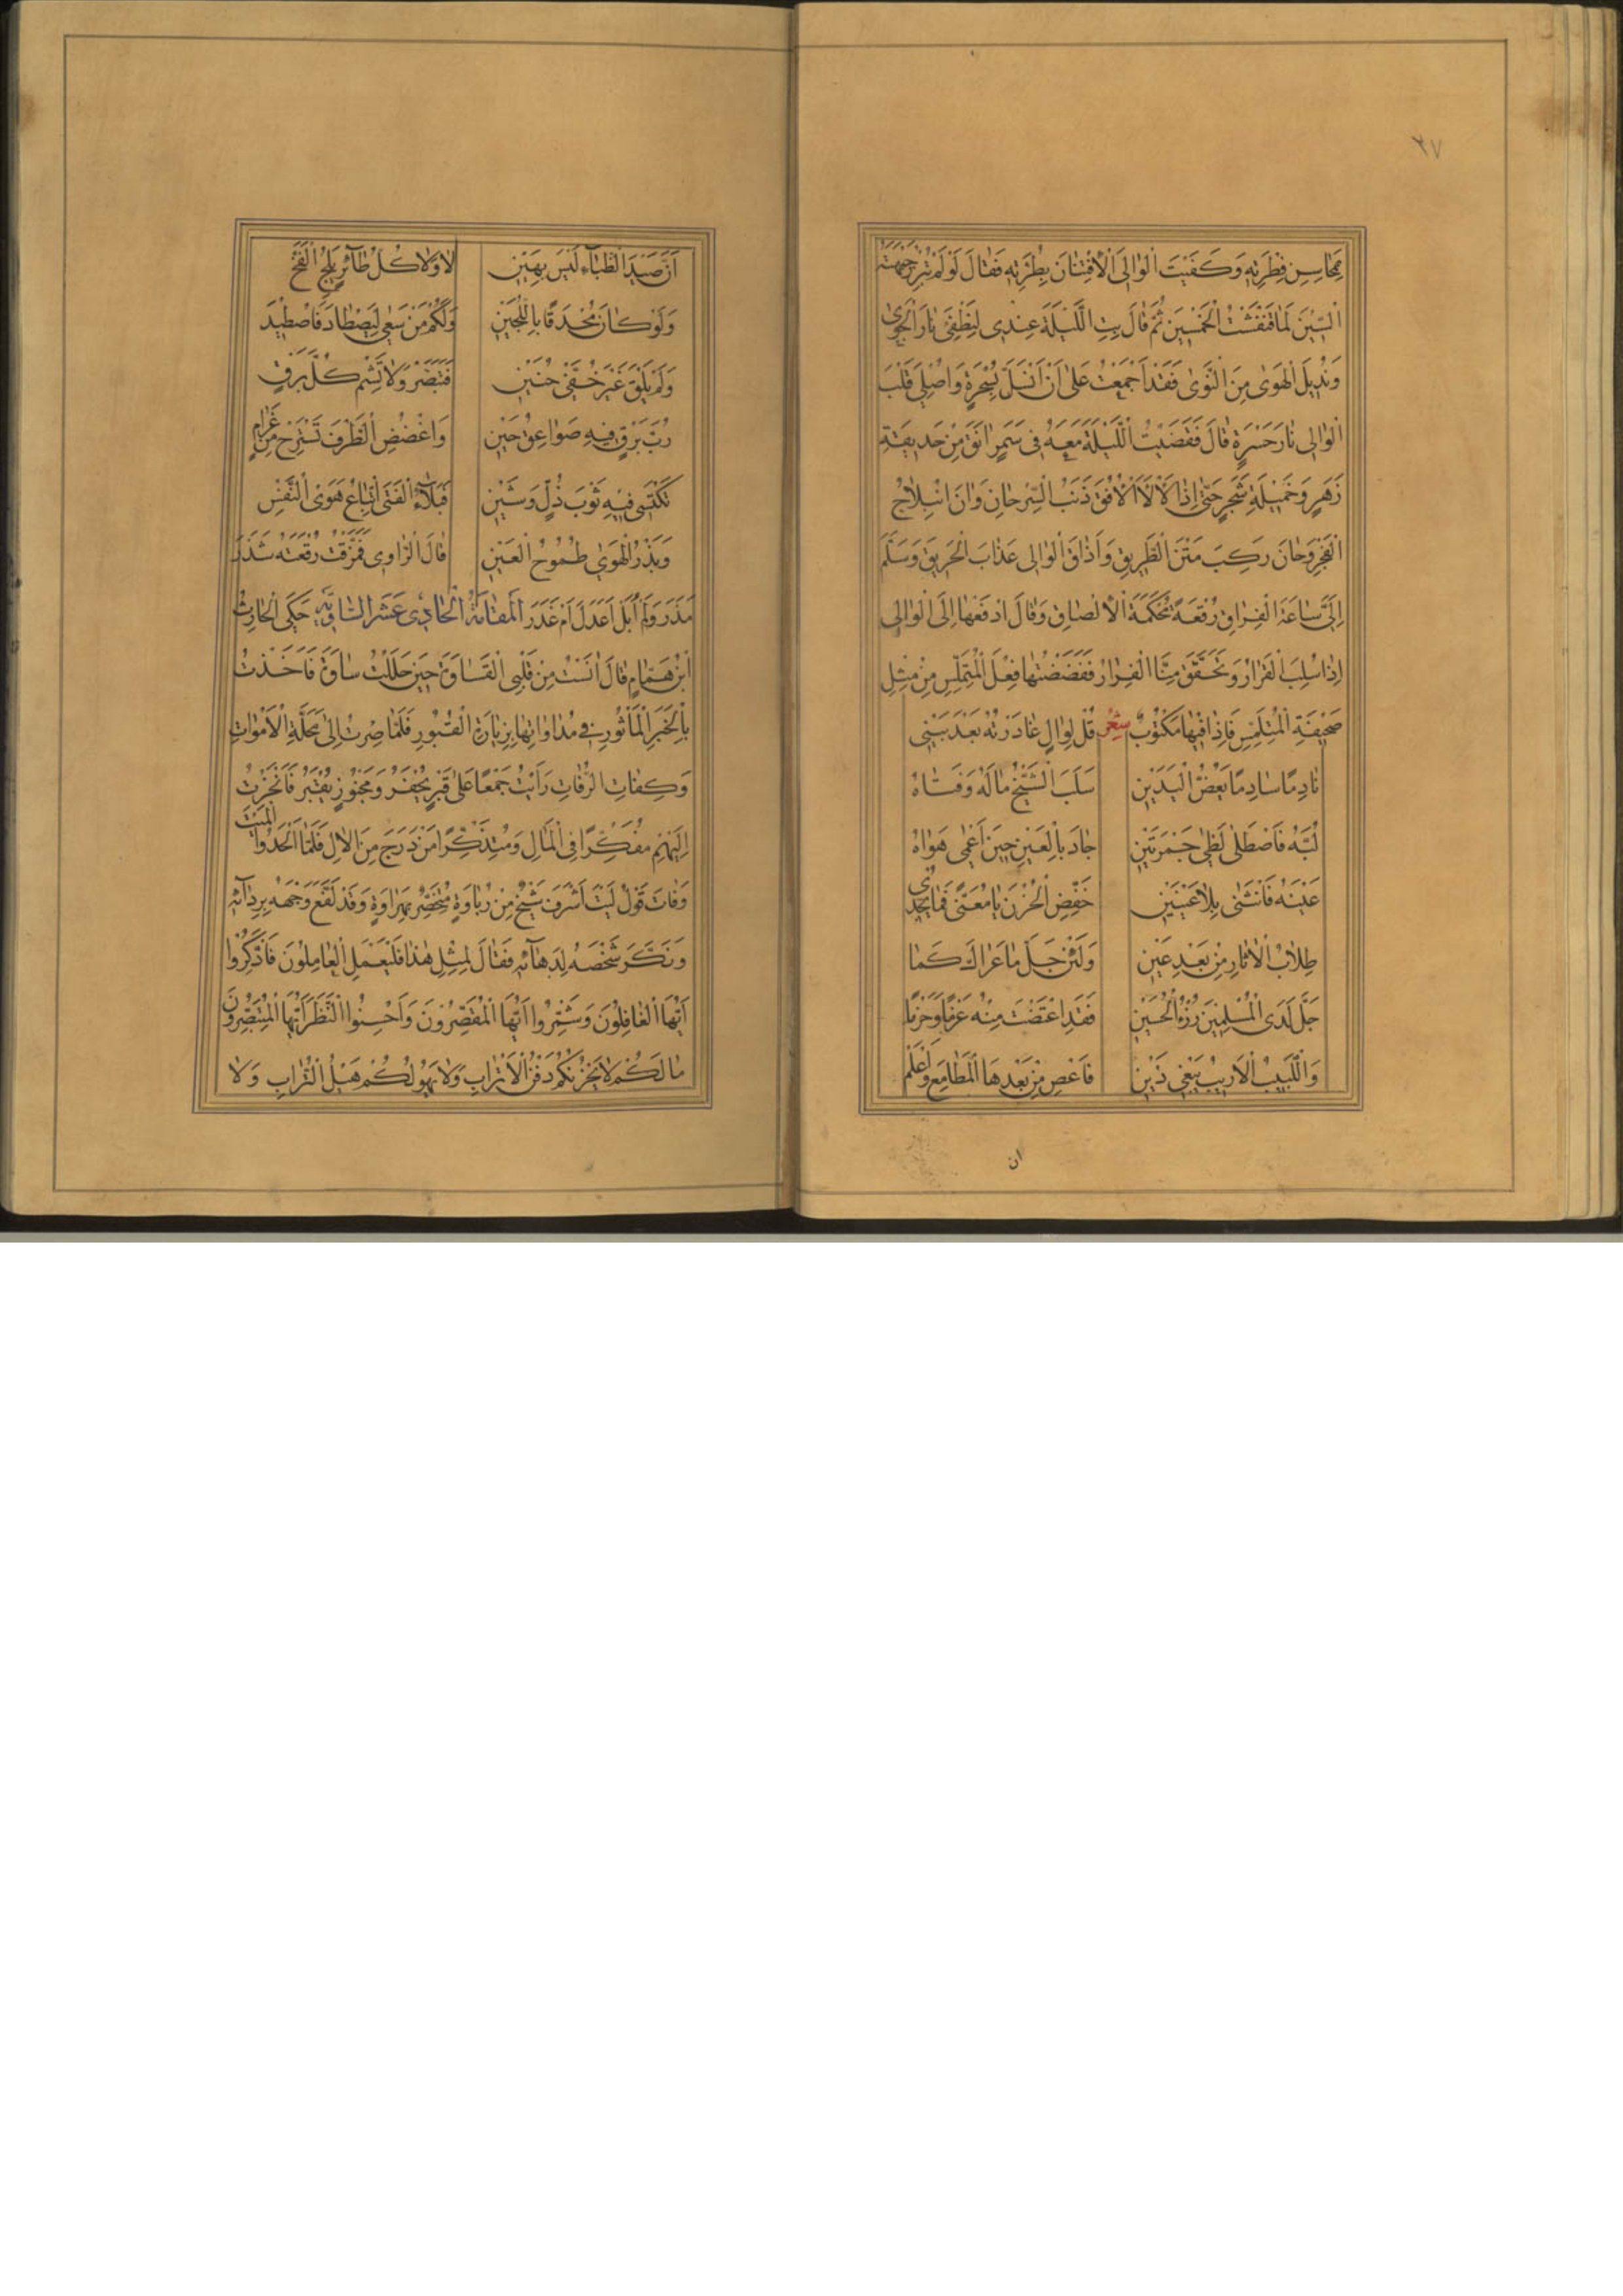 ٢٧
مَحَاسِنِ فِطْرَتِهِ وَكَفَيْتَ الْوَالِىَ الْاِفْتِتَانَ بِطُرَّتِهِ فَقَالَ لَوْ لَمْ تُبْرِزْ جَبْهَتُهُ
السِّيْنَ لَمَا قَنْفَشْتُ الْخَمْسِيْنَ ثُمَّ قَالَ بِتِ اللَّيْلَةَ عِنْدِى لِنُطْفِئَ نَارَ الْجَوٰى
وَنُدِيْلَ الْهَوٰى مِنَ النَّوٰى فَقَدْ اَجْمَعْتُ عَلٰى اَنْ اَنْسَلَّ بِسُحْرَةٍ وَاُصْلِىَ قَلْبَ
الْوَالِى نَارَ حَسْرَةٍ قَالَ فَقَضَيْتُ اللَّيْلَةَ مَعَهُ فِى سَمَرٍ اٰنَقَ مِنْ حَدِيقَةِ
زَهَرٍ وَخَمِيْلَةِ شَجَرٍ حَتّٰى اِذَا لَأْلَأَ الْاُفُقَ ذَنَبُ السِّرْحَانِ وَاٰنَ انْبِلَاجُ
الْفَجْرِ وَحَانَ رَكِبَ مَتْنَ الطَّرِيقِ وَاَذَاقَ الْوَالِى عَذَابَ الْحَرِيقِ وَسَلَّمَ
اِلَىَّ سَاعَةَ الْفِرَاقِ رُقْعَةً مُحْكَمَةَ الْاِلْصَاقِ وَقَالَ ادْفَعْهَا اِلَى الْوَالِى
اِذَا سُلِبَ الْقَرَارُ وَتَحَقَّقَ مِنَّا الْفِرَارُ فَفَضَضْتُهَا فِعْلَ الْمُتَمَلِّسِ مِنْ مِثْلِ
صَحِيْفَةِ الْمُتَلَمِّسِ فَاِذَا فِيْهَا مَكْتُوْبٌ شِعْرٌ قُلْ لِوَالٍ غَادَرْتُهُ بَعْدَ بَيْنِى
نَادِمًا سَادِمًا يَعُضُّ الْيَدَيْنِ سَلَبَ الشَّيْخُ مَالَهُ وَفَتَاهُ
لُبَّهُ فَاصْطَلٰى لَظٰى حَسْرَتَيْنِ جَادَ بِالْعَيْنِ حِيْنَ اَعْمٰى هَوَاهُ
عَيْنَهُ فَانْثَنٰى بِلَا عَيْنَيْنِ خَفِّضِ الْحُزْنَ يَا مُعَنّٰى فَمَا يُجْدِى
طِلَابُ الْاٰثَارِ مِنْ بَعْدِ عَيْنِ وَلَئِنْ جَلَّ مَا عَرَاكَ كَمَا
جَلَّ لَدَى الْمُسْلِمِيْنَ رُزْءُ الْحُسَيْنِ فَقَدِ اعْتَضْتَ مِنْهُ عَزْمًا وَحَزْمًا
وَاللَّبِيْبُ الْاَرِيْبُ يَبْغِى ذَيْنِ فَاعْصِ مِنْ بَعْدِهَا الْمَطَامِعَ وَاعْلَمْ
ان
اَنَّ صَيْدَ الظِّبَآءِ لَيْسَ بِهَيْنِ لَا وَلَا كُلُّ طَآئِرٍ يَلِجُ الْفَخَّ
وَلَوْ كَانَ مُحْدَقًا بِاللُّجَيْنِ وَلَكَمْ مَنْ سَعٰى لِيَصْطَادَ فَاصْطِيْدَ
وَلَمْ يَلْقَ غَيْرَ خُفَّىْ حُنَيْنِ فَتَبَصَّرْ وَلَا تَشِمْ كُلَّ بَرْقٍ
رُبَّ بَرْقٍ فِيْهِ صَوَاعِقُ حَيْنِ وَاغْضُضِ الطَّرْفَ تَسْتَرِحْ مِنْ غَرَامٍ
تَكْتَسِى فِيْهِ ثَوْبَ ذُلٍّ وَشَيْنِ فَبَلَآءُ الْفَتٰى اتِّبَاعُ هَوَى النَّفْسِ
وَبَذْرُ الْهَوٰى طُمُوْحُ الْعَيْنِ قَالَ الرَّاوِى فَمَزَّقْتُ رُقْعَتَهُ شَذَرَ
مَذَرَ وَلَمْ اُبَلْ اَعَدَلَ اَمْ عَذَرَ اَلْمَقَامَةُ الْحَادِىْ عَشَرَ السَّاوِيَّةِ حَكَى الْحَارِثُ
ابْنُ هَمَّامٍ قَالَ اٰنَسْتُ مِنْ قَلْبِى الْقَسَاوَةَ حِيْنَ حَلَلْتُ سَاوَةَ فَاَخَذْتُ
بِالْخَبَرِ الْمَأْثُوْرِ فِى مُدَاوَاتِهَا بِزِيَارَةِ الْقُبُوْرِ فَلَمَّا صِرْتُ اِلٰى مَحَلَّةِ الْاَمْوَاتِ
وَكِفَاتِ الرُّفَاتِ رَاَيْتُ جَمْعًا عَلٰى قَبْرٍ يُحْفَرُ وَمَجْنُوْزٍ يُقْبَرُ فَانْحَزْتُ
اِلَيْهِمْ مُفَكِّرًا فِى الْمَاٰلِ وَمُتَذَكِّرًا مَنْ دَرَجَ مِنَ الْاٰلِ فَلَمَّا اَلْحَدُوا الْمَيْتَ
وَفَاتَ قَوْلُ لَيْتَ اَشْرَفَ شَيْخٌ مِنْ رُبَاوَةٍ مُتَخَصِّرٌ بِهِرَاوَةٍ وَقَدْ لَفَّعَ وَجْهَهُ بِرِدَآئِهِ
وَنَكَّرَ شَخْصَهُ لِدَهَآئِهِ فَقَالَ لِمِثْلِ هٰذَا فَلْيَعْمَلِ الْعَامِلُوْنَ فَادَّكِرُوا
اَيُّهَا الْغَافِلُوْنَ وَشَمِّرُوا اَيُّهَا الْمُقَصِّرُوْنَ وَاَحْسِنُوا النَّظَرَ اَيُّهَا الْمُتَبَصِّرُوْنَ
مَا لَكُمْ لَا يَحْزُنُكُمْ دَفْنُ الْاَتْرَابِ وَلَا يَهُوْلُكُمْ هَيْلُ التُّرَابِ وَلَا